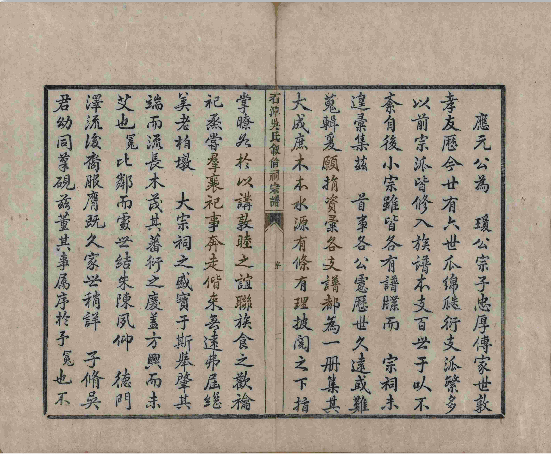 應元公為　瓊公宗子忠厚傳家世敦
孝友歷今廿有六世瓜綿瓞衍支派繁多
以前宗派皆修入族譜本支百世于以不
紊自後小宗雖皆各有譜牒而　宗祠未
遑彙集茲　首事各公慮歷世久遠或難
蒐輯爰願捐資彙各支譜都為一冊集其
大成庶木本水源有條有理披閱之下指
吳氏敘倫祠宗譜
序
掌瞭然於以講敦睦之誼聯族食之歡禴
祀烝嘗羣襄祀事奔走偕來無遠弗屆總
美老柏墩　大宗祠之盛實于斯舉肇其
端而流長木茂其蕃衍之慶蓋方興而未
艾也冕比鄰而處世結朱陳夙仰　德門
澤流後裔服膺既久家世稍詳　子脩吳
君幼同筆硯茲董其事属序於予冕也不